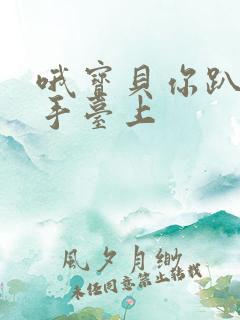 哦寶貝你趴
手臺上
風夕月緲
未经同意禁止转载